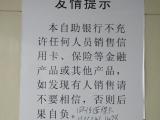 友情提示
本自助银行不允
许任何人员销售信
用卡、保险等金融
产品或其他产品,
如发现有人销售请
不要相信,否则后
果自负。